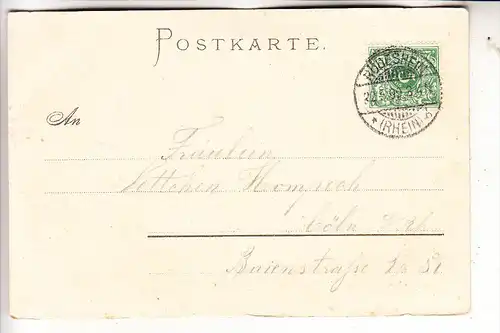 POSTKARTE.
RÜDESHEIM
* (RHEIN)
An
Fräulein
Nettchen Hompesch
Cöln a/Rh.
Baienstraße